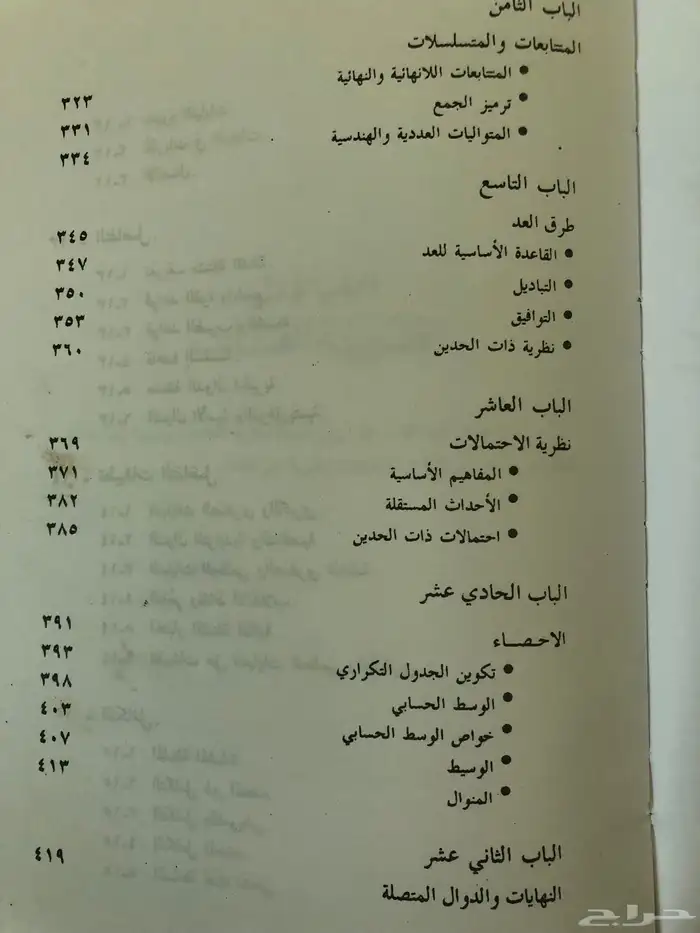 الباب الثامن
المتتابعات والمتسلسلات
• المتتابعات اللانهائية والنهائية ٣٢٣
• ترميز الجمع ٣٣١
• المتواليات العددية والهندسية ٣٣٤
الباب التاسع
طرق العد ٣٤٥
• القاعدة الأساسية للعد ٣٤٧
• التباديل ٣٥٠
• التوافيق ٣٥٣
• نظرية ذات الحدين ٣٦٠
الباب العاشر
نظرية الاحتمالات ٣٦٩
• المفاهيم الأساسية ٣٧١
• الأحداث المستقلة ٣٨٢
• احتمالات ذات الحدين ٣٨٥
الباب الحادي عشر
الاحصاء ٣٩١
• تكوين الجدول التكراري ٣٩٣
• الوسط الحسابي ٣٩٨
• خواص الوسط الحسابي ٤٠٣
• الوسيط ٤٠٧
• المنوال ٤١٣
الباب الثاني عشر
النهايات والدوال المتصلة ٤١٩
حراج